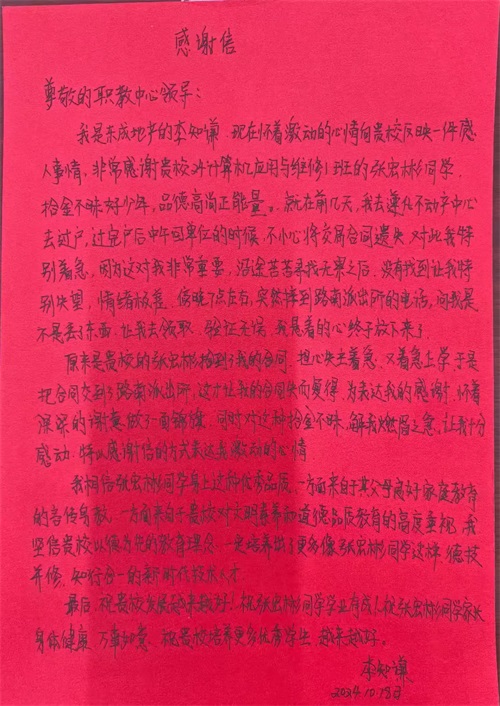 感谢信
尊敬的职教中心领导：
我是东成地产的李知谦，现在怀着激动的心情向贵校反映一件感
人事情，非常感谢贵校对计算机应用与维修1班的张宏彬同学，
拾金不昧好少年，品德高尚正能量。就在前几天，我去遵化不动产中心
去过户，过完户后中午回单位的时候，不小心将交易合同遗失，对此我特
别着急，因为这对我非常重要，沿途苦苦寻找无果之后，没有找到让我特
别失望，情绪极差，傍晚7点左右，突然接到路南派出所的电话，问我是
不是丢了东西，让我去领取，验证无误，我悬着的心终于放下来了
原来是贵校的张宏彬捡到了我的合同，担心失主着急，又着急上学于是
把合同交到了路南派出所，这才让我的合同失而复得，为表达我的感谢，怀着
深深的谢意做了一面锦旗，同时对这种拾金不昧，解我燃眉之急，让我十分
感动，特以感谢信的方式表达我激动的心情
我相信张宏彬同学身上这种优秀品质，一方面来自于其父母良好家庭教育
的言传身教，一方面来自于贵校对文明素养和道德品质教育的高度重视，我
坚信贵校以德为先的教育理念，一定培养出了更多像张宏彬同学这样，德技
并修，知行合一的新时代技术人才
最后，祝贵校发展越来越好！祝张宏彬同学学业有成！祝张宏彬同学家长
身体健康，万事如意，祝贵校培养更多优秀学生，越来越好。
李知谦
2024.10.18日